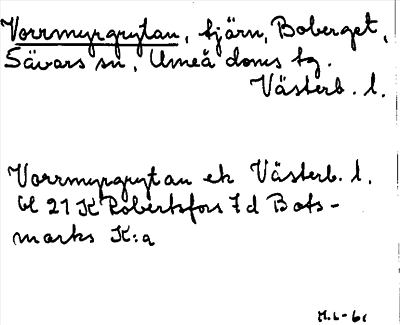 Vorrmyrgrytan, tjärn, Boberget,
Sävars sn, Umeå doms tg.
Västerb. l.
Vorrmyrgrytan ek Västerb. l.
bl 21 K Robertsfors 7 d Bots-
marks K:a